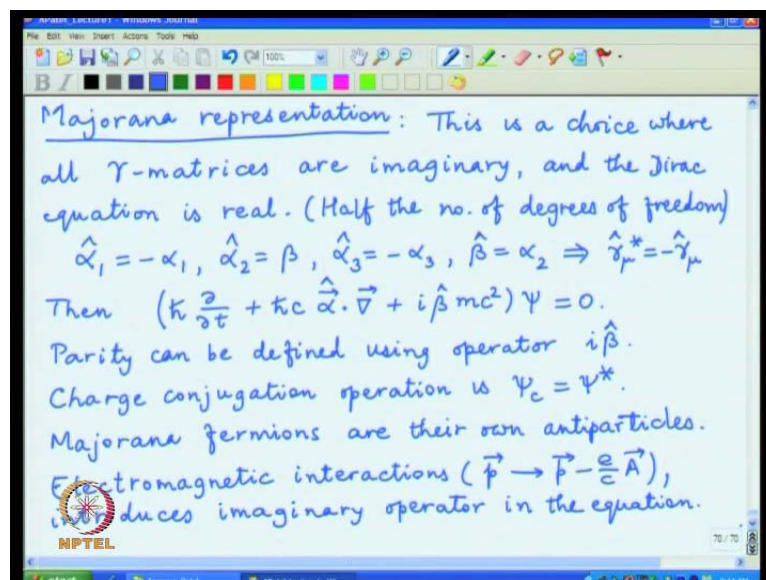 XPatel_Lecture1 - Windows Journal
File Edit View Insert Actions Tools Help
100%
B I
Majorana representation : This is a choice where
all γ-matrices are imaginary, and the Dirac
equation is real. (Half the no. of degrees of freedom)
α̂₁ = -α₁, α̂₂ = β, α̂₃ = -α₃, β̂ = α₂ ⇒ γ̂*_μ = -γ̂_μ
Then (ħ ∂/∂t + ħc α̂⃗·∇⃗ + iβ̂mc²)Ψ = 0.
Parity can be defined using operator iβ̂.
Charge conjugation operation is Ψ_c = Ψ*.
Majorana fermions are their own antiparticles.
Electromagnetic interactions (p⃗ → p⃗ - e/c A⃗),
introduces imaginary operator in the equation.
NPTEL
70 / 70
start